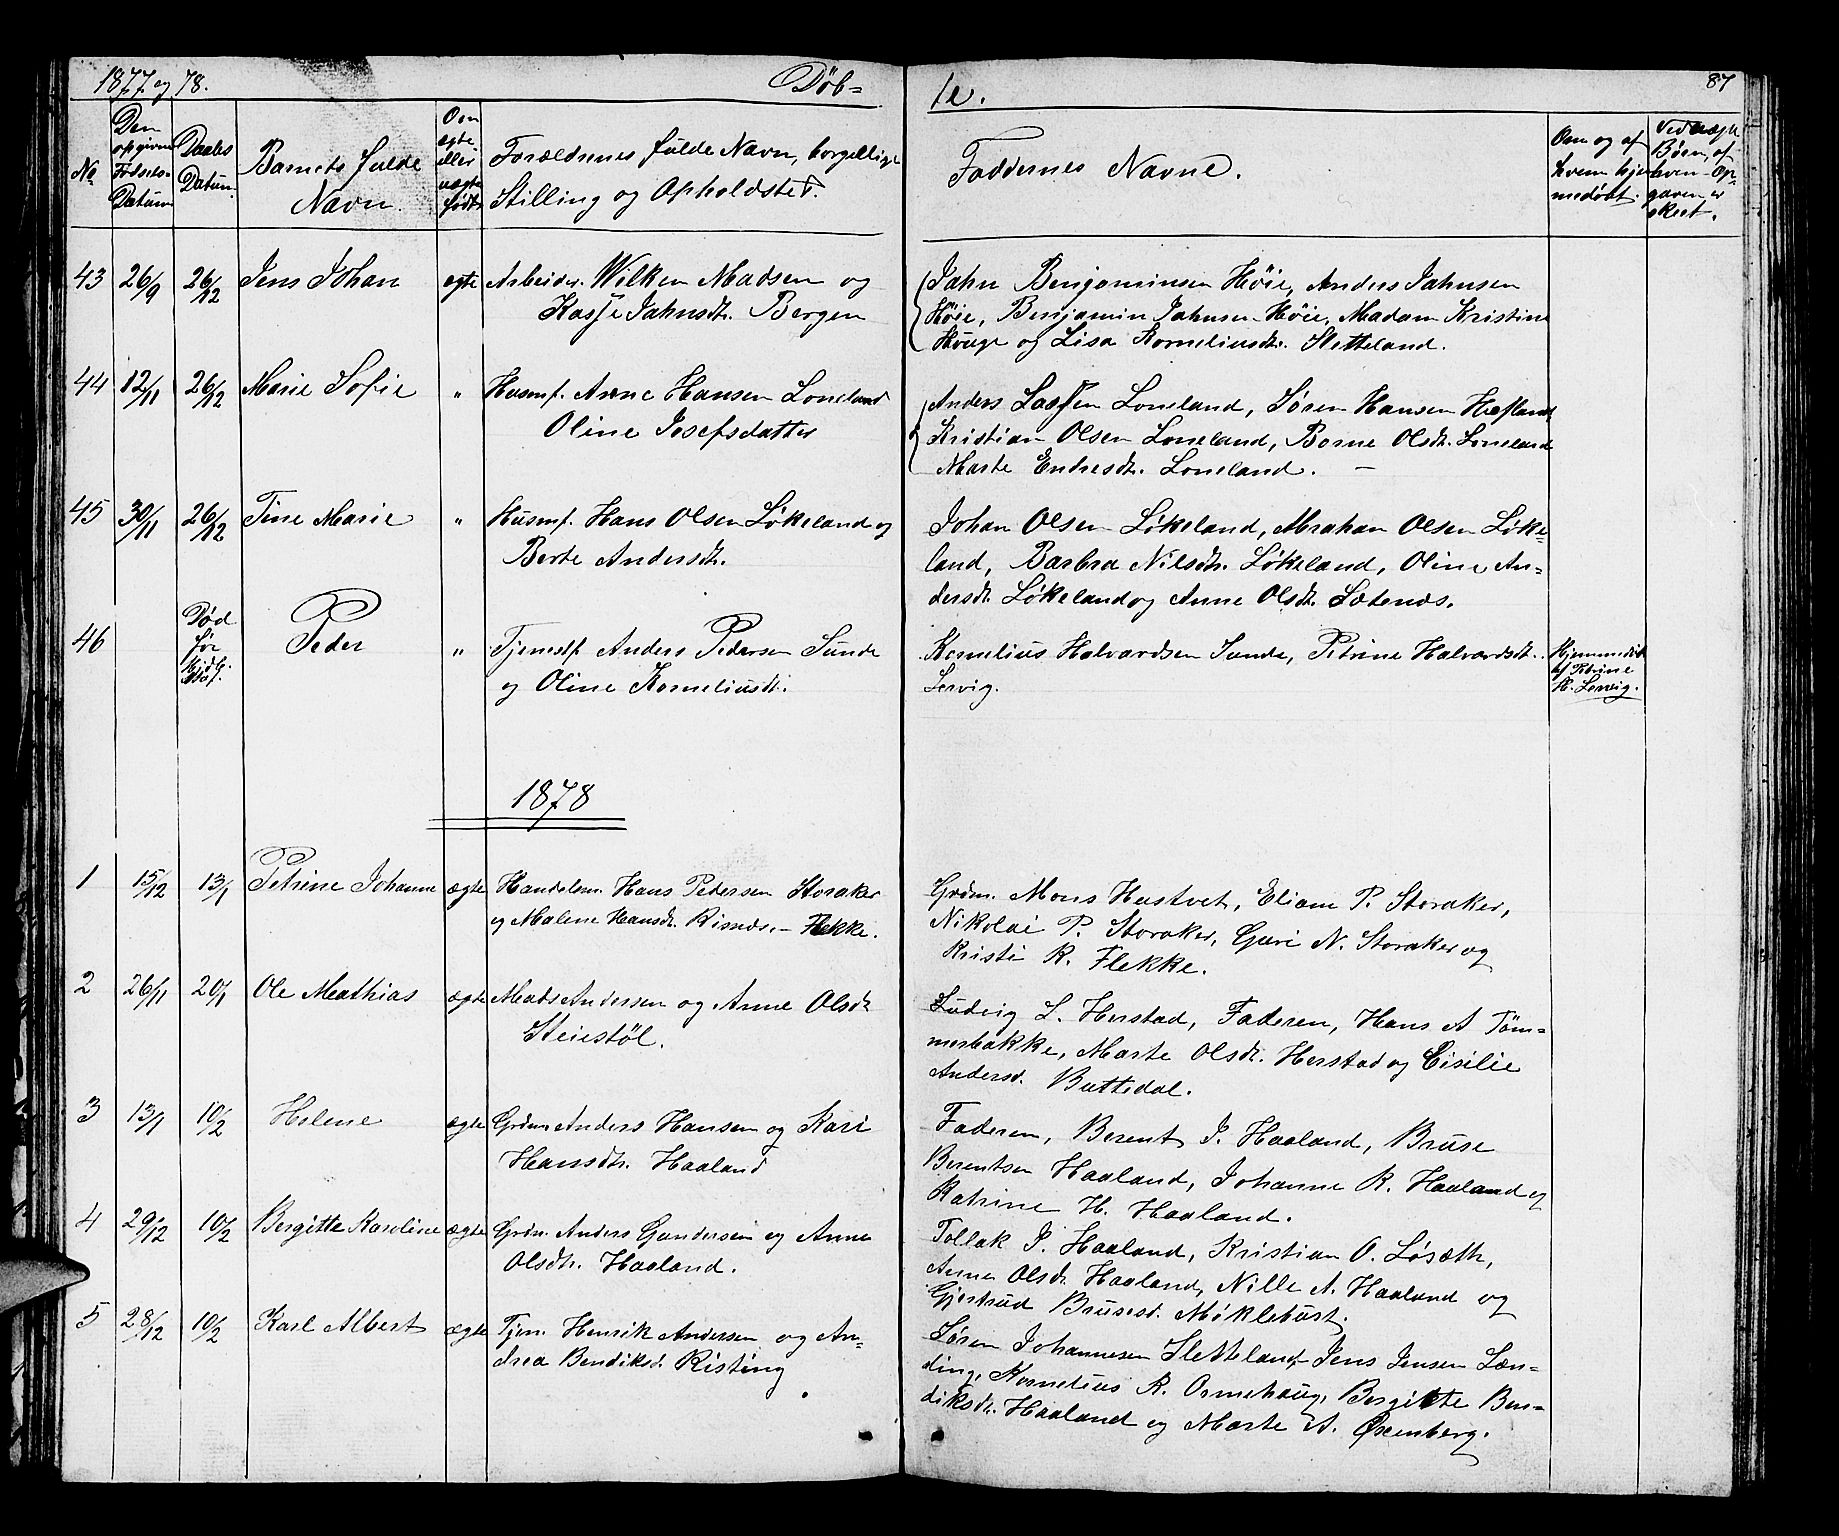 1877 og 78.
Døb-
te.
87
No
Den opgivne Fødsels-Datum
Daabs Datum.
Barnets fulde Navn.
Om ægte eller uægte født.
Forældrenes fulde Navn, borgerlige Stilling og Opholdsted.
Faddernes Navne.
Om og af hvem hjemmedøbt.
Ved uægte Børn, af hvem Opgaven er skeet.
43 26/9 26/12 Jens Johan ægte Arbeider. Wilken Madsen og
Jahnsdt. Bergen
Jahn Benjaminsen Høie, Anders Jahnsen
Høie, Benjamin Jahnsen Høie, Madam Kristine
Houge og Lisa Korneliusdt. Sletteland.
44 12/11 26/12 Marie Sofie " Husmf. Arne Hansen Loneland
Oline Josefsdatter
Anders Lassen Loneland, Søren Hansen
Kristian Olsen Loneland, Olsdt. Loneland
Marte Endresdt. Loneland. —
45 30/11 26/12 Tine Marie " Husmf. Hans Olsen Løkeland og
Berte Andersdt.
Johan Olsen Løkeland, Abraham Olsen Løke-
land, Barbra Nilsdt. Løkeland, Oline An-
dersdt. Løkeland og Anne Olsdt. Sætenes.
46 Død før Peder " Tjenestf. Anders Pedersen Sunde
og Oline Korneliusdt.
Kornelius Halvardsen Sunde, Petrine Halvardsdt.
Lervig.
Hjemmedøbt
af Petrine
H. Lervig.
1878
1 15/12 13/1 Petrine Johanne ægte Handelsm. Hans Pedersen Storaker
og Malene Hansdt. Risnes. - Flekke.
Grdm. Mons Hustvet, Eliam P. Storaker,
Nikolai P. Storaker, Guri N. Storaker og
Kristi R. Flekke.
2 26/11 20/1 Ole Mathias ægte Mads Andersen og Anne Olsdt
Steiestøl.
Ludvig L. Herstad, Faderen, Hans A Tøm-
merbakke, Marte Olsdt. Herstad og Cisilie
Andersd. Buttedal.
3 13/1 10/2 Helene ægte Grdm Anders Hansen og Kari
Hansdtr. Haaland
Faderen, Berent J. Haaland, Bruse
Berentsen Haaland, Johanne R. Haaland og
Katrine H. Haaland.
4 29/12 10/2 Bergitte Karoline ægte Grdm. Anders Gundersen og Anne
Olsdtr. Haaland.
Tollak J. Haaland, Kristian O. Løsæth,
Anne Olsdt. Haaland, Nille A. Haaland og
Gjertrud Brusesd. Møklebust.
5 28/12 10/2 Karl Albert ægte Tjen. Henrik Andersen og An-
drea Bendiksd. Risting
Søren Johannesen Sletteland, Jens Jensen Læn-
ding, Kornelius R. Ormehaug, Bergitte Ben-
diksdt. Haaland og Marte A. Oxenberg.